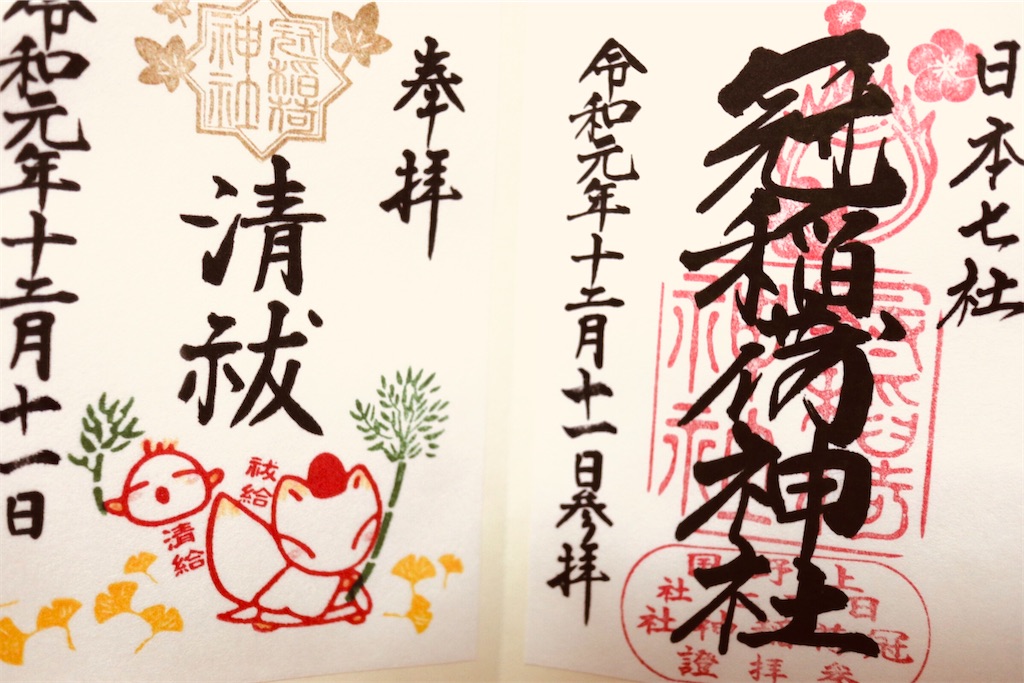 日本七社
冠稲荷神社
令和元年十二月十一日参拝
奉拝
冠稲荷
神社
清祓
祓給
清給
令和元年十二月十一日